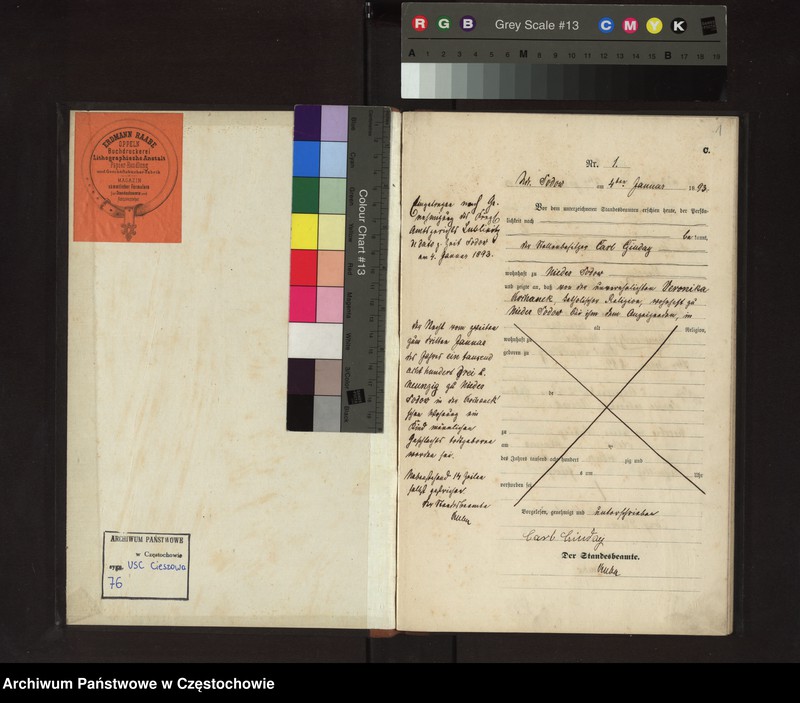 R G B Grey Scale #13 C M Y K
A 1 2 3 4 5 6 M 8 9 10 11 12 13 14 15 B 17 18 19
ERDMANN RAABE
OPPELN
Buchdruckerei
Lithographische Anstalt
Papier Handlung
MAGAZIN
Colour Chart #13
Blue
Cyan
Green
Yellow
Red
Magenta
White
3/Color
Black
ARCHIWUM PAŃSTWOWE
w Częstochowie
sygn. USC Cieszowa
76
1
C.
Nr. 1.
Sodow am 4ten Januar 1893.
Vor dem unterzeichneten Standesbeamten erschien heute, der Persön-
lichkeit nach
bekannt,
der Stellenbesitzer Carl Ginday
wohnhaft zu Nieder Sodow
und zeigte an, daß von der unverehelichten Veronika
Kochanek, katholischer Religion, wohnhaft zu
Nieder Sodow bei ihm dem Anzeigenden, in
alt Religion,
wohnhaft zu
geboren zu
de
zu
am te
des Jahres tausend acht hundert zig und
s um Uhr
verstorben sei
Vorgelesen, genehmigt und unterschrieben
Carl Ginday
Der Standesbeamte.
Eingetragen nach Ge-
nehmigung des Königl.
Amtsgerichts Lublinitz
z. Zeit Sodow
am 4. Januar 1893.
der Nacht vom zweiten
zum dritten Januar
des Jahres ein tausend
acht hundert drei u.
neunzig zu Nieder
Sodow in der Kochanek
schen Wohnung ein
Kind männlichen
Geschlechts todtgeboren
worden sei.
Nebenstehend 14 Zeilen
selbst geschrieben
Der Standesbeamte
Archiwum Państwowe w Częstochowie